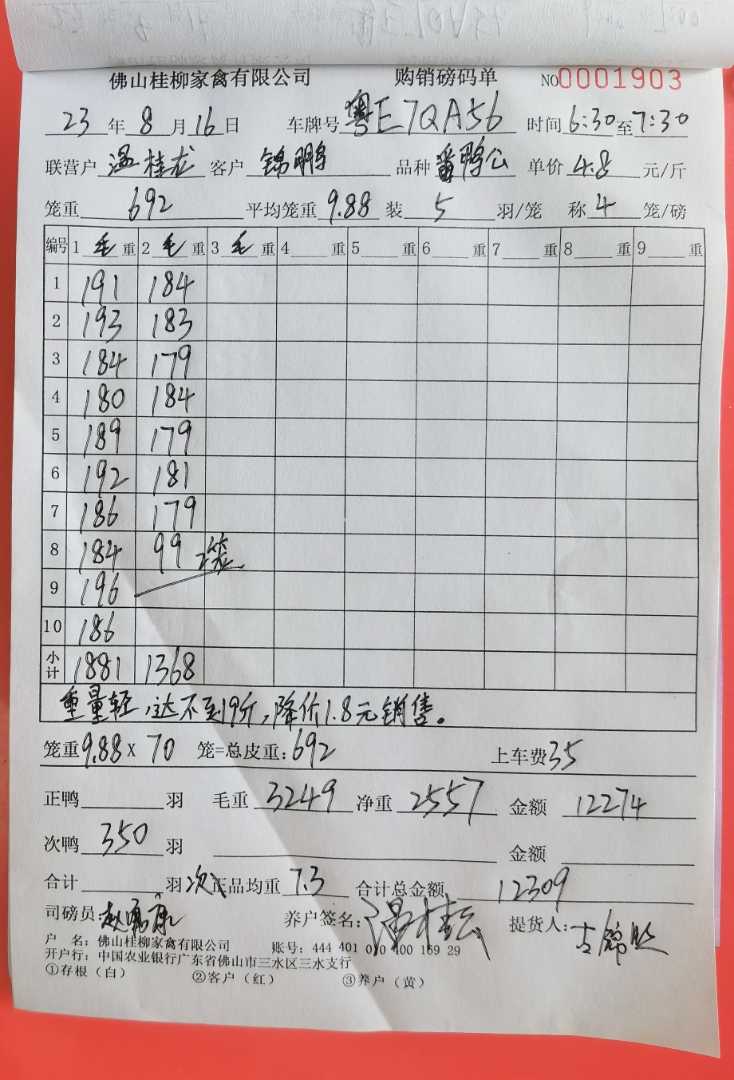 佛山桂柳家禽有限公司 购销磅码单 NO0001903
23年8月16日 车牌号粤E7QA56 时间6:30至7:30
联营户温桂龙 客户锦鹏 品种番鸭公 单价4.8元/斤
笼重692 平均笼重9.88 装5羽/笼 称4笼/磅
编号 1毛重 2毛重 3毛重 4重 5重 6重 7重 8重 9重
1 191 184
2 193 183
3 184 179
4 180 184
5 189 179
6 192 181
7 186 179
8 184 99 2笼
9 196
10 186
小计 1881 1368
重量轻,达不到19斤,降价1.8元销售。
笼重9.88×70笼=总皮重:692 上车费35
正鸭 羽 毛重3249 净重2557 金额12274
次鸭350羽 金额
合计 羽 次正品均重7.3 合计总金额12309
司磅员: 养户签名: 提货人:
户 名:佛山桂柳家禽有限公司 账号:444 401 010 400 159 29
开户行:中国农业银行广东省佛山市三水区三水支行
①存根(白) ②客户(红) ③养户(黄)